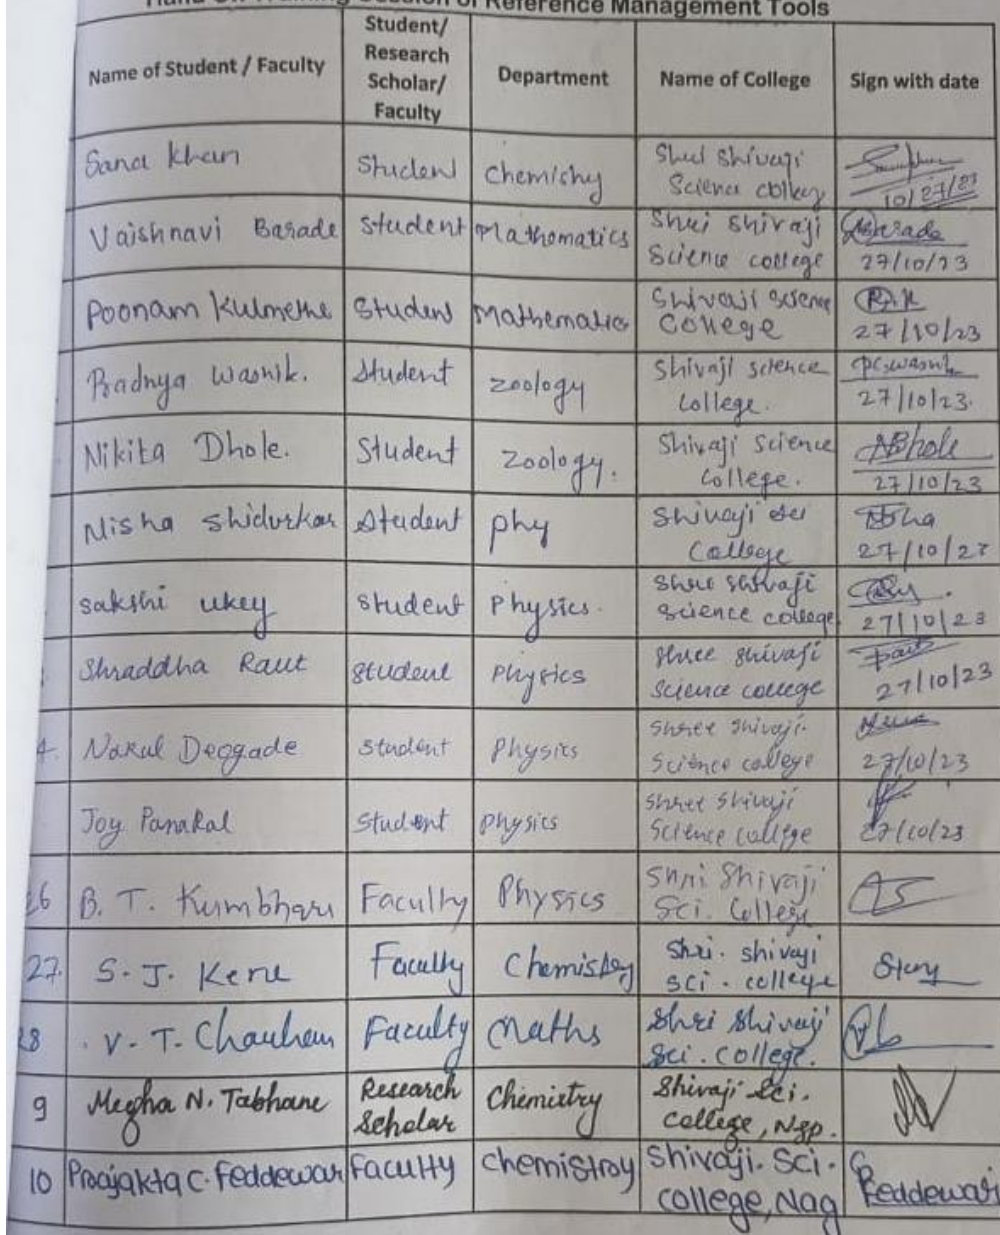 Training Session of Reference Management Tools
Name of Student / Faculty Student/ Research Scholar/ Faculty Department Name of College Sign with date
Sana Khan Student Chemistry Shri Shivaji Science college 10/27/23
Vaishnavi Barade Student Mathematics Shri Shivaji Science college Barade 27/10/23
Poonam Kulmethe Student Mathematics Shivaji Science College P.K 27/10/23
Pradnya Wasnik. Student Zoology Shivaji science college. 27/10/23.
Nikita Dhole. Student Zoology. Shivaji Science College. NDhole 27/10/23
Nisha Shidurkar Student phy Shivaji Sci College 27/10/23
sakshi ukey student Physics. Shree Shivaji science college 27/10/23
Shraddha Raut student Physics Shree Shivaji science college 27/10/23
4. Nakul Deogade student Physics Shree Shivaji. Science college 27/10/23
Joy Panakal Student physics Shree Shivaji Science college 27/10/23
26 B. T. Kumbhare Faculty Physics Shri Shivaji Sci. College
27. S. J. Kene Faculty Chemistry Shri. shivaji sci. college
28 V. T. Chauhan Faculty Maths Shri Shivaji Sci. college.
9 Megha N. Tabhane Research Scholar Chemistry Shivaji Sci. college, Ngp.
10 Prajakta C. Feddewar Faculty Chemistroy Shivaji. Sci. college, Nag Feddewar